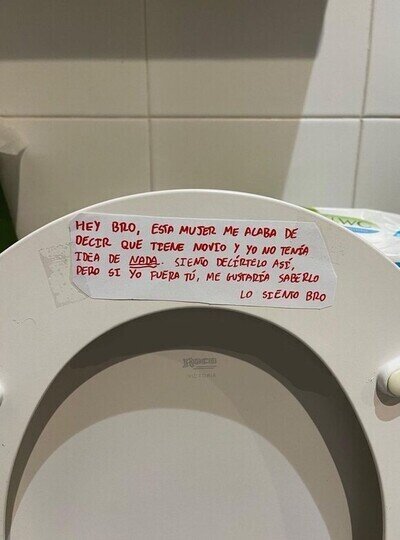 HEY BRO, ESTA MUJER ME ACABA DE
DECIR QUE TIENE NOVIO Y YO NO TENÍA
IDEA DE NADA. SIENTO DECÍRTELO ASÍ,
PERO SI YO FUERA TÚ, ME GUSTARÍA SABERLO
LO SIENTO BRO
Roca
VICTORIA